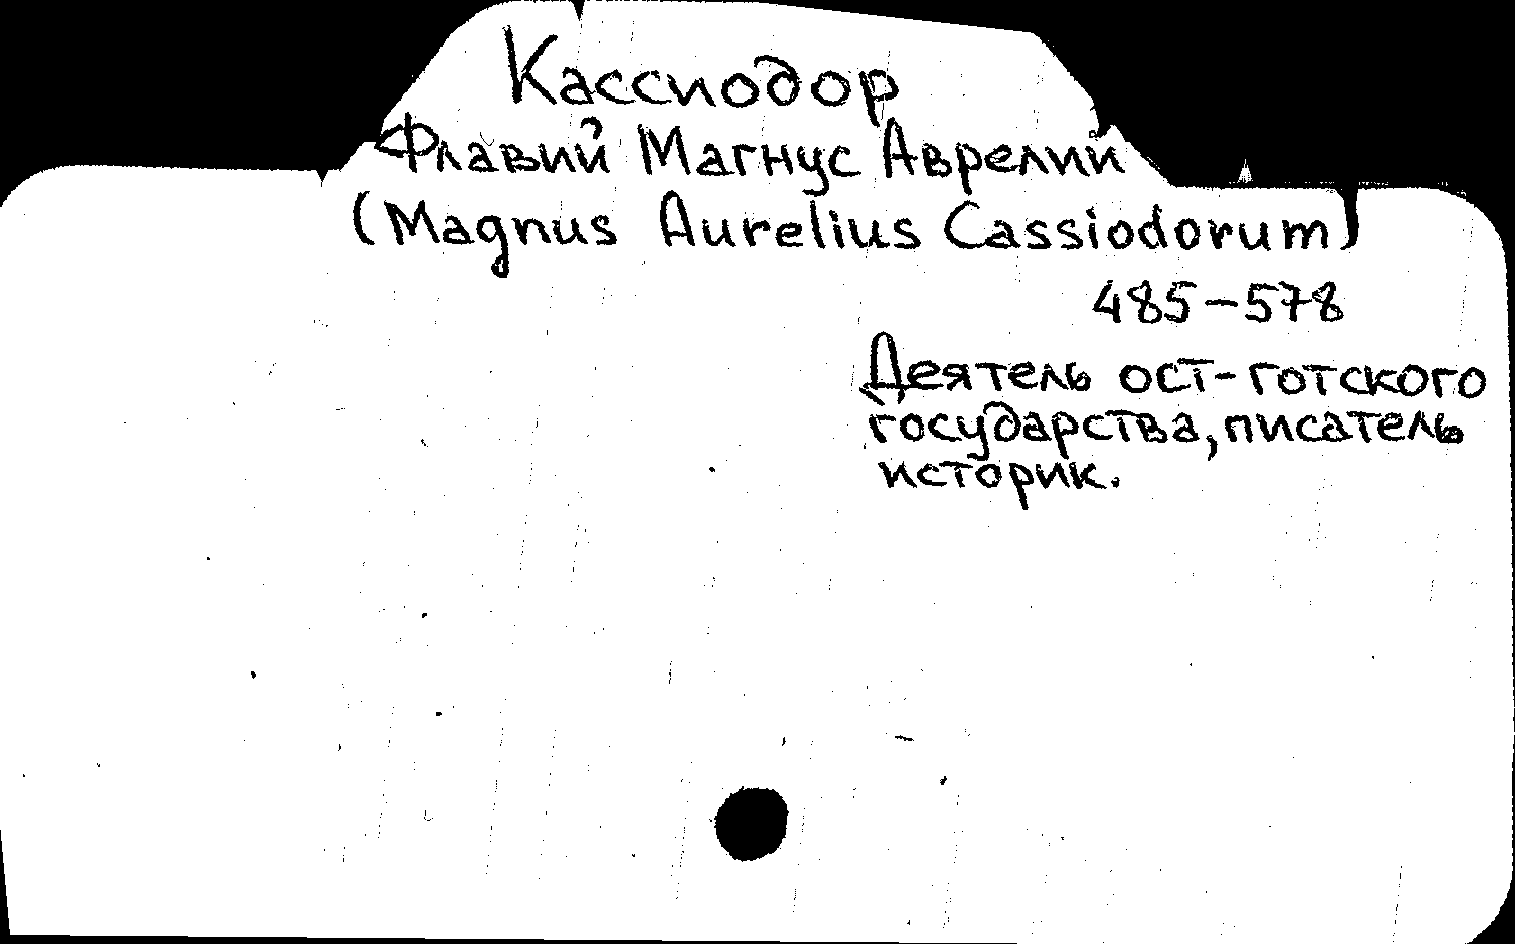 Кассиодор
Флавий Магнус Аврелий
(Magnus Aurelius Cassiodorum)
485–578
Деятель ост-готского
государства, писатель
историк.